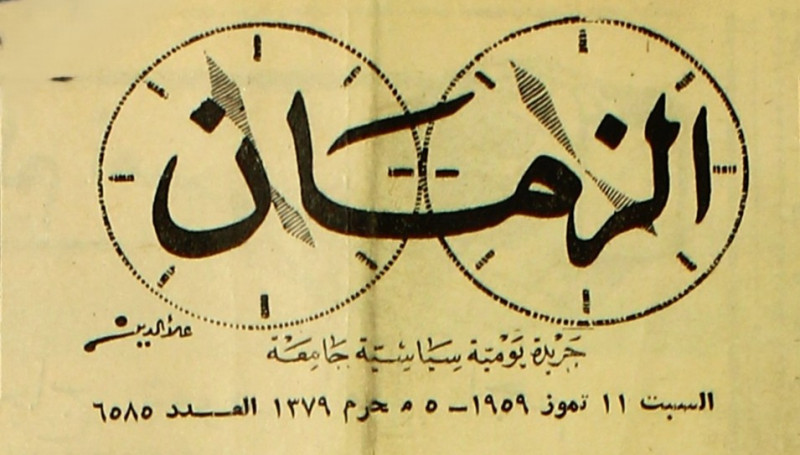 الزمان
علاءالدين
جريدة يومية سياسية جامعة
السبت ١١ تموز ١٩٥٩ – ٥ محرم ١٣٧٩ العدد ٦٥٨٥